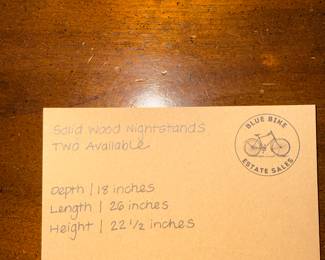 Solid Wood Nightstands
Two Available
BLUE BIKE
ESTATE SALES
Depth | 18 inches
Length | 26 inches
Height | 22 1/2 inches